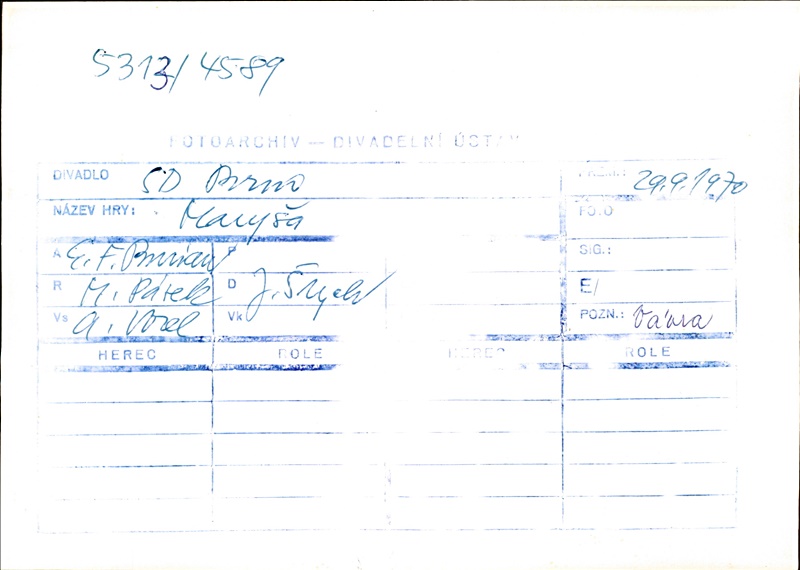 5313/4589
FOTOARCHIV — DIVADELNÍ ÚSTAV
DIVADLO SD Brno PREM.: 29.9.1970
NÁZEV HRY: Maryša FOTO
A E. F. Burian P SIG.:
R M. Pásek D E/
Vs A. Vorel Vk POZN.: Vávra
HEREC ROLE HEREC ROLE